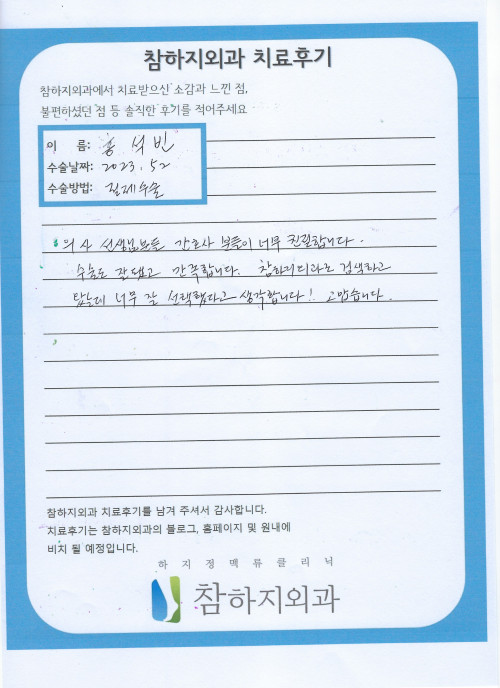 참하지외과 치료후기
참하지외과에서 치료받으신 소감과 느낀 점,
불편하셨던 점 등 솔직한 후기를 적어주세요
이 름: 홍석빈
수술날짜: 2023. 5.2
수술방법: 질제수술
의사 선생님분들 간호사 분들이 너무 친절합니다.
수술도 잘됐고 만족합니다. 참하지외과로 검색하고
왔는데 너무 잘 선택했다고 생각합니다! 고맙습니다.
참하지외과 치료후기를 남겨 주셔서 감사합니다.
치료후기는 참하지외과의 블로그, 홈페이지 및 원내에
비치 될 예정입니다.
하지정맥류클리닉
참하지외과